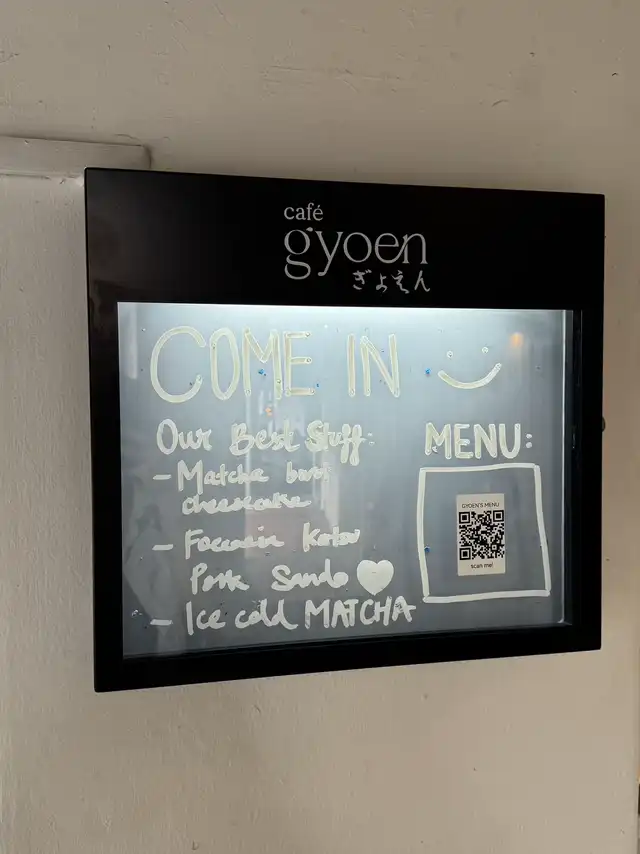 café
gyoen
ぎょえん
COME IN
Our Best Stuff:
- Matcha
cheesecake
MENU:
GYOEN'S MENU
scan me!
- Focaccia
Pork Sando
- Ice cold MATCHA